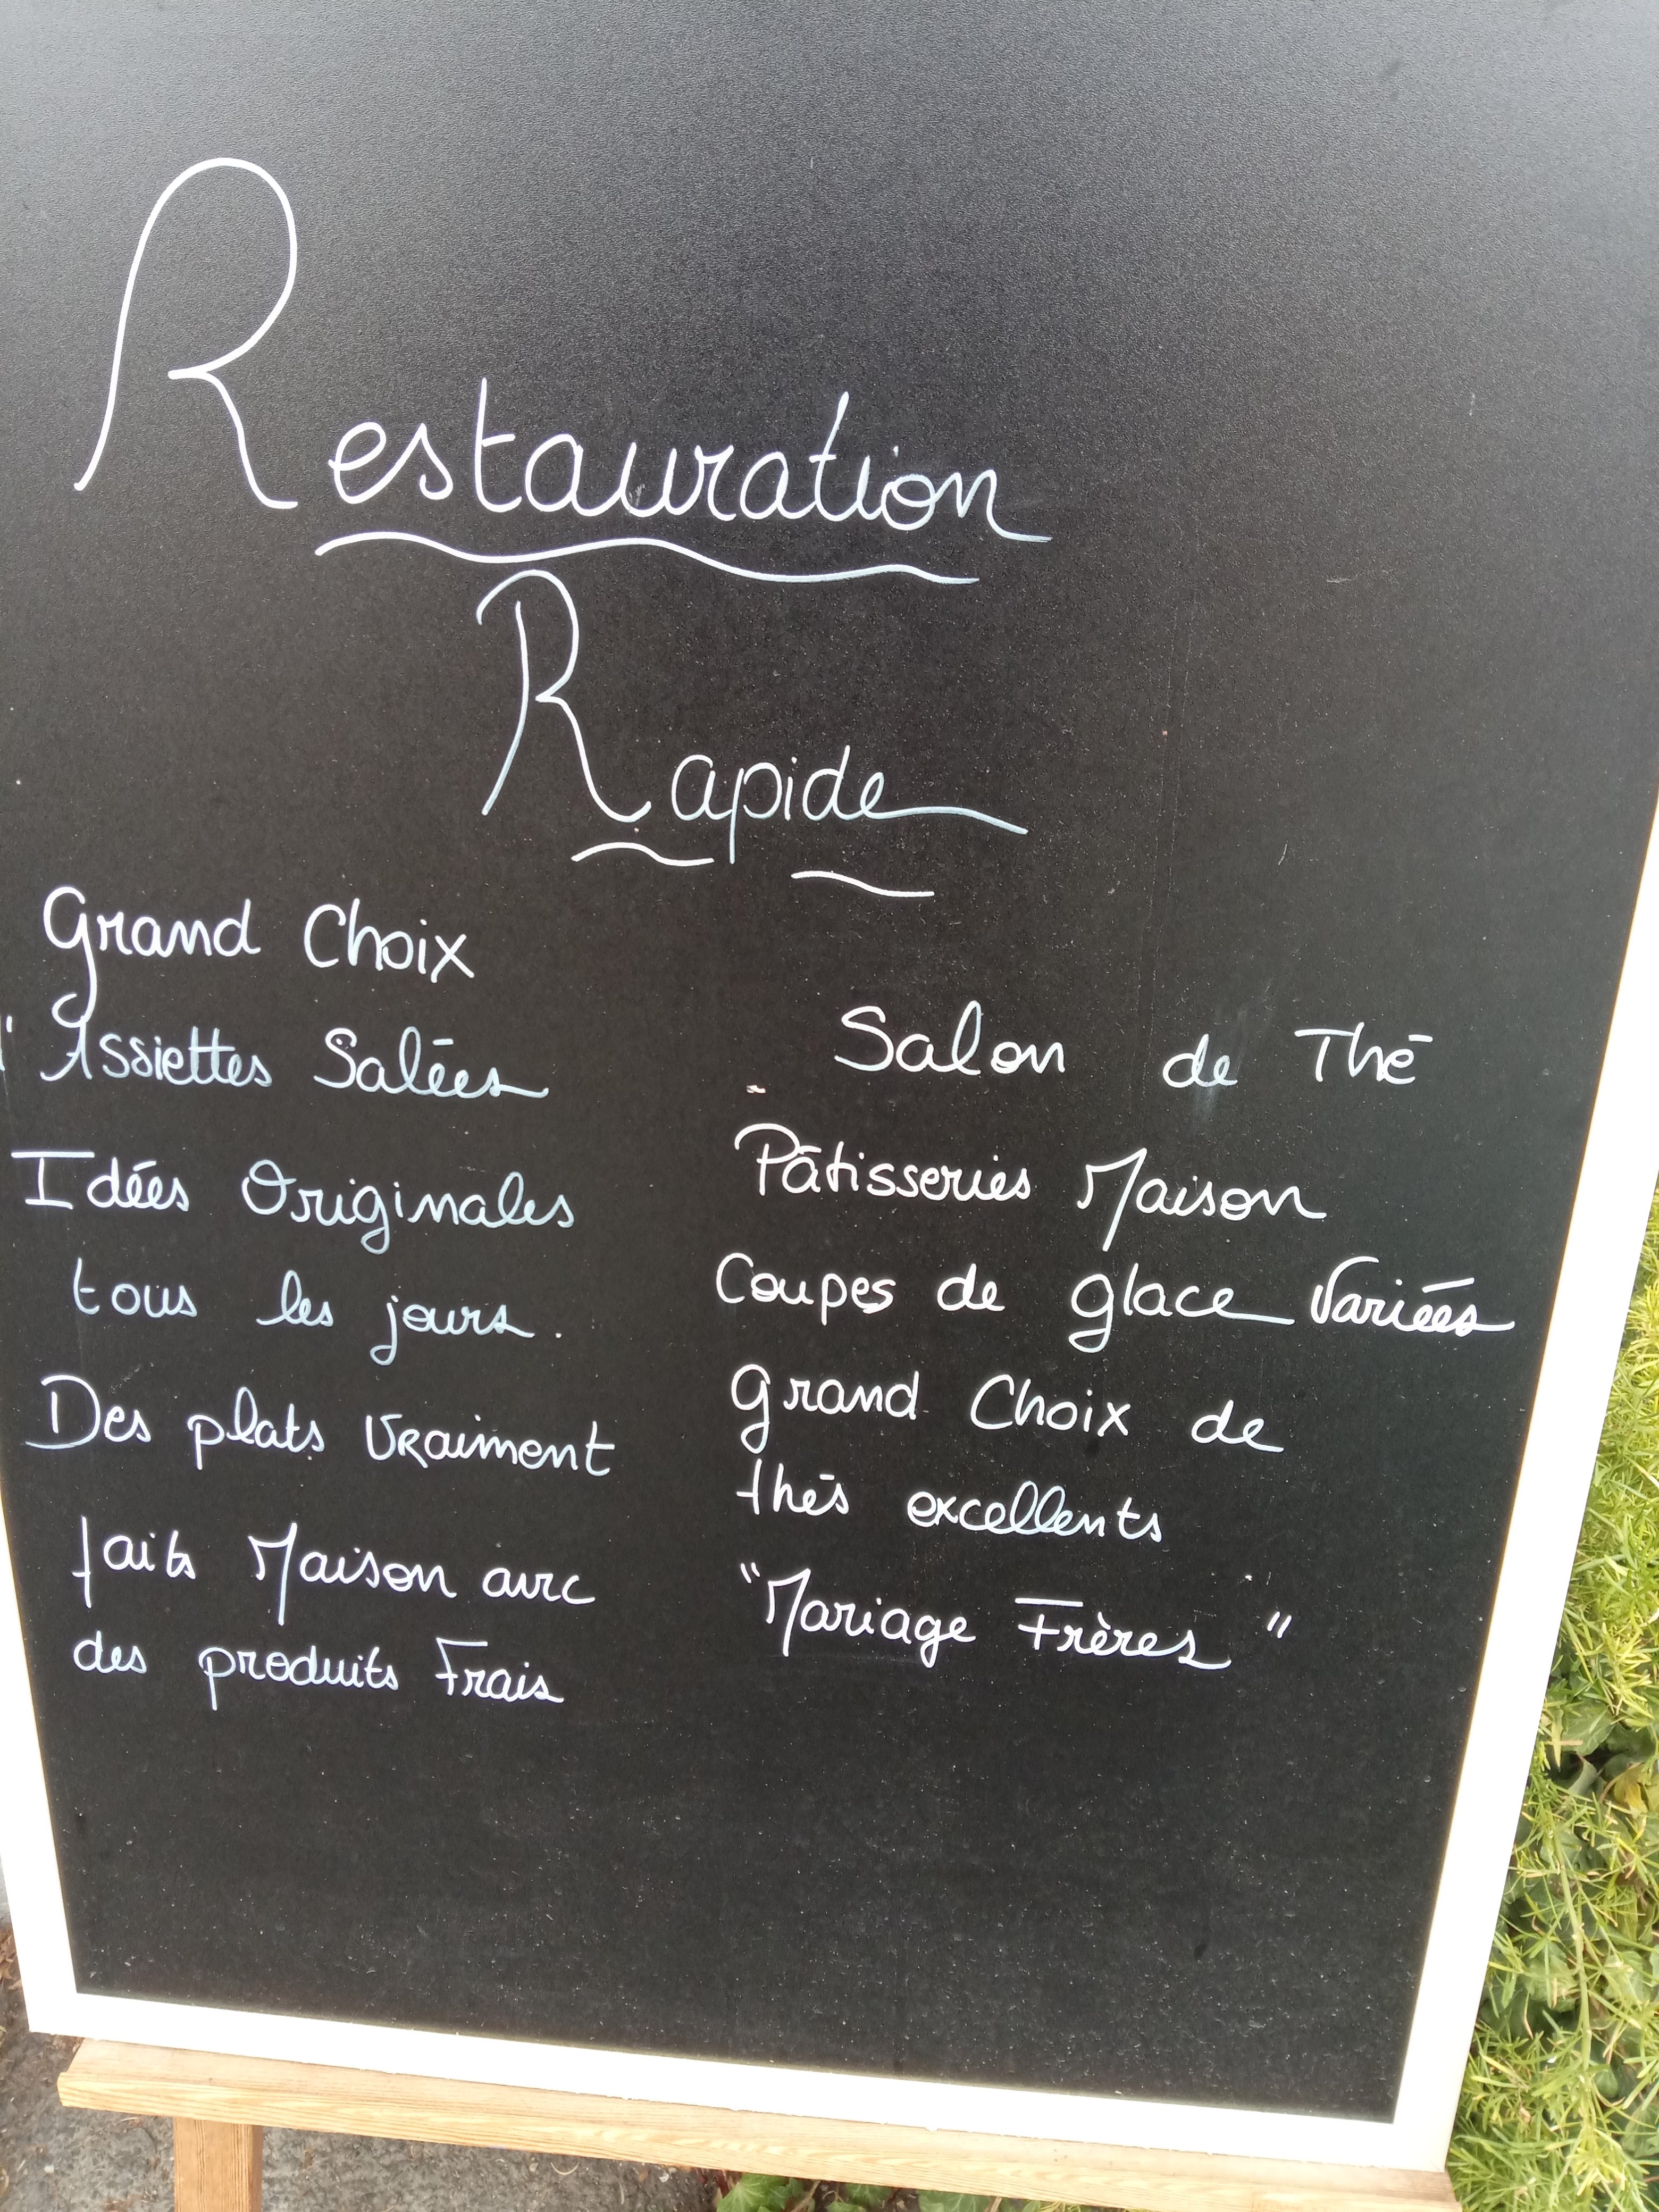 Restauration
Rapide
Grand Choix
" Assiettes Salées
Idées Originales
tous les jours.
Des plats vraiment
faits Maison avec
des produits Frais
Salon de Thé
Pâtisseries Maison
Coupes de glace Variées
Grand Choix de
thés excellents
"Mariage Frères"